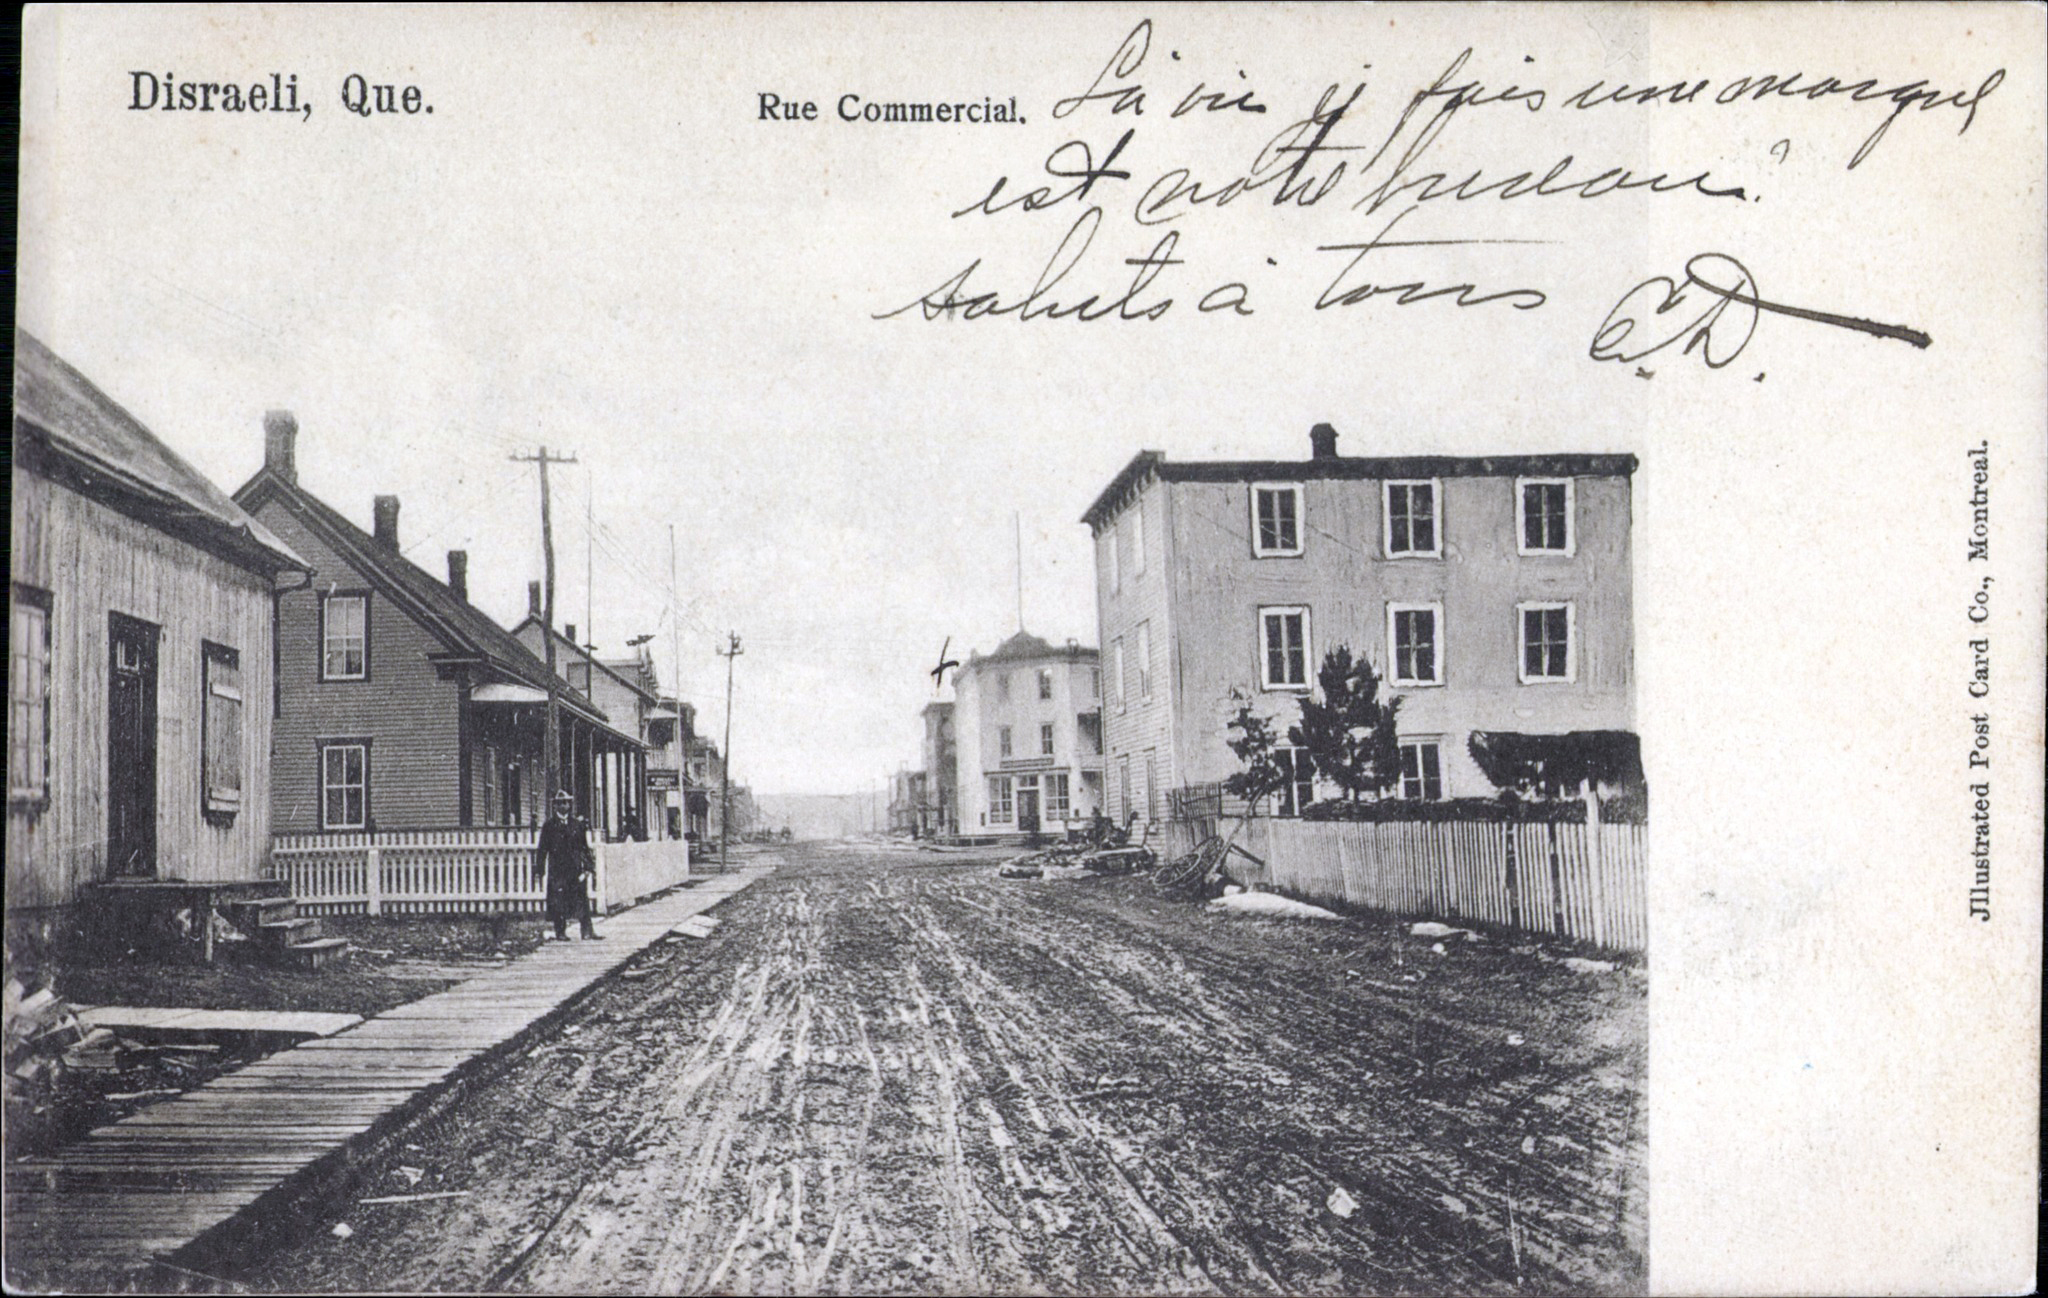 Disraeli, Que.
Rue Commercial.
Là où j'y fais une marque
est notre bureau.
saluts à tous
E.D.
Illustrated Post Card Co., Montreal.